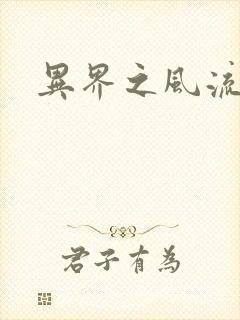 異界之風流
君子有為